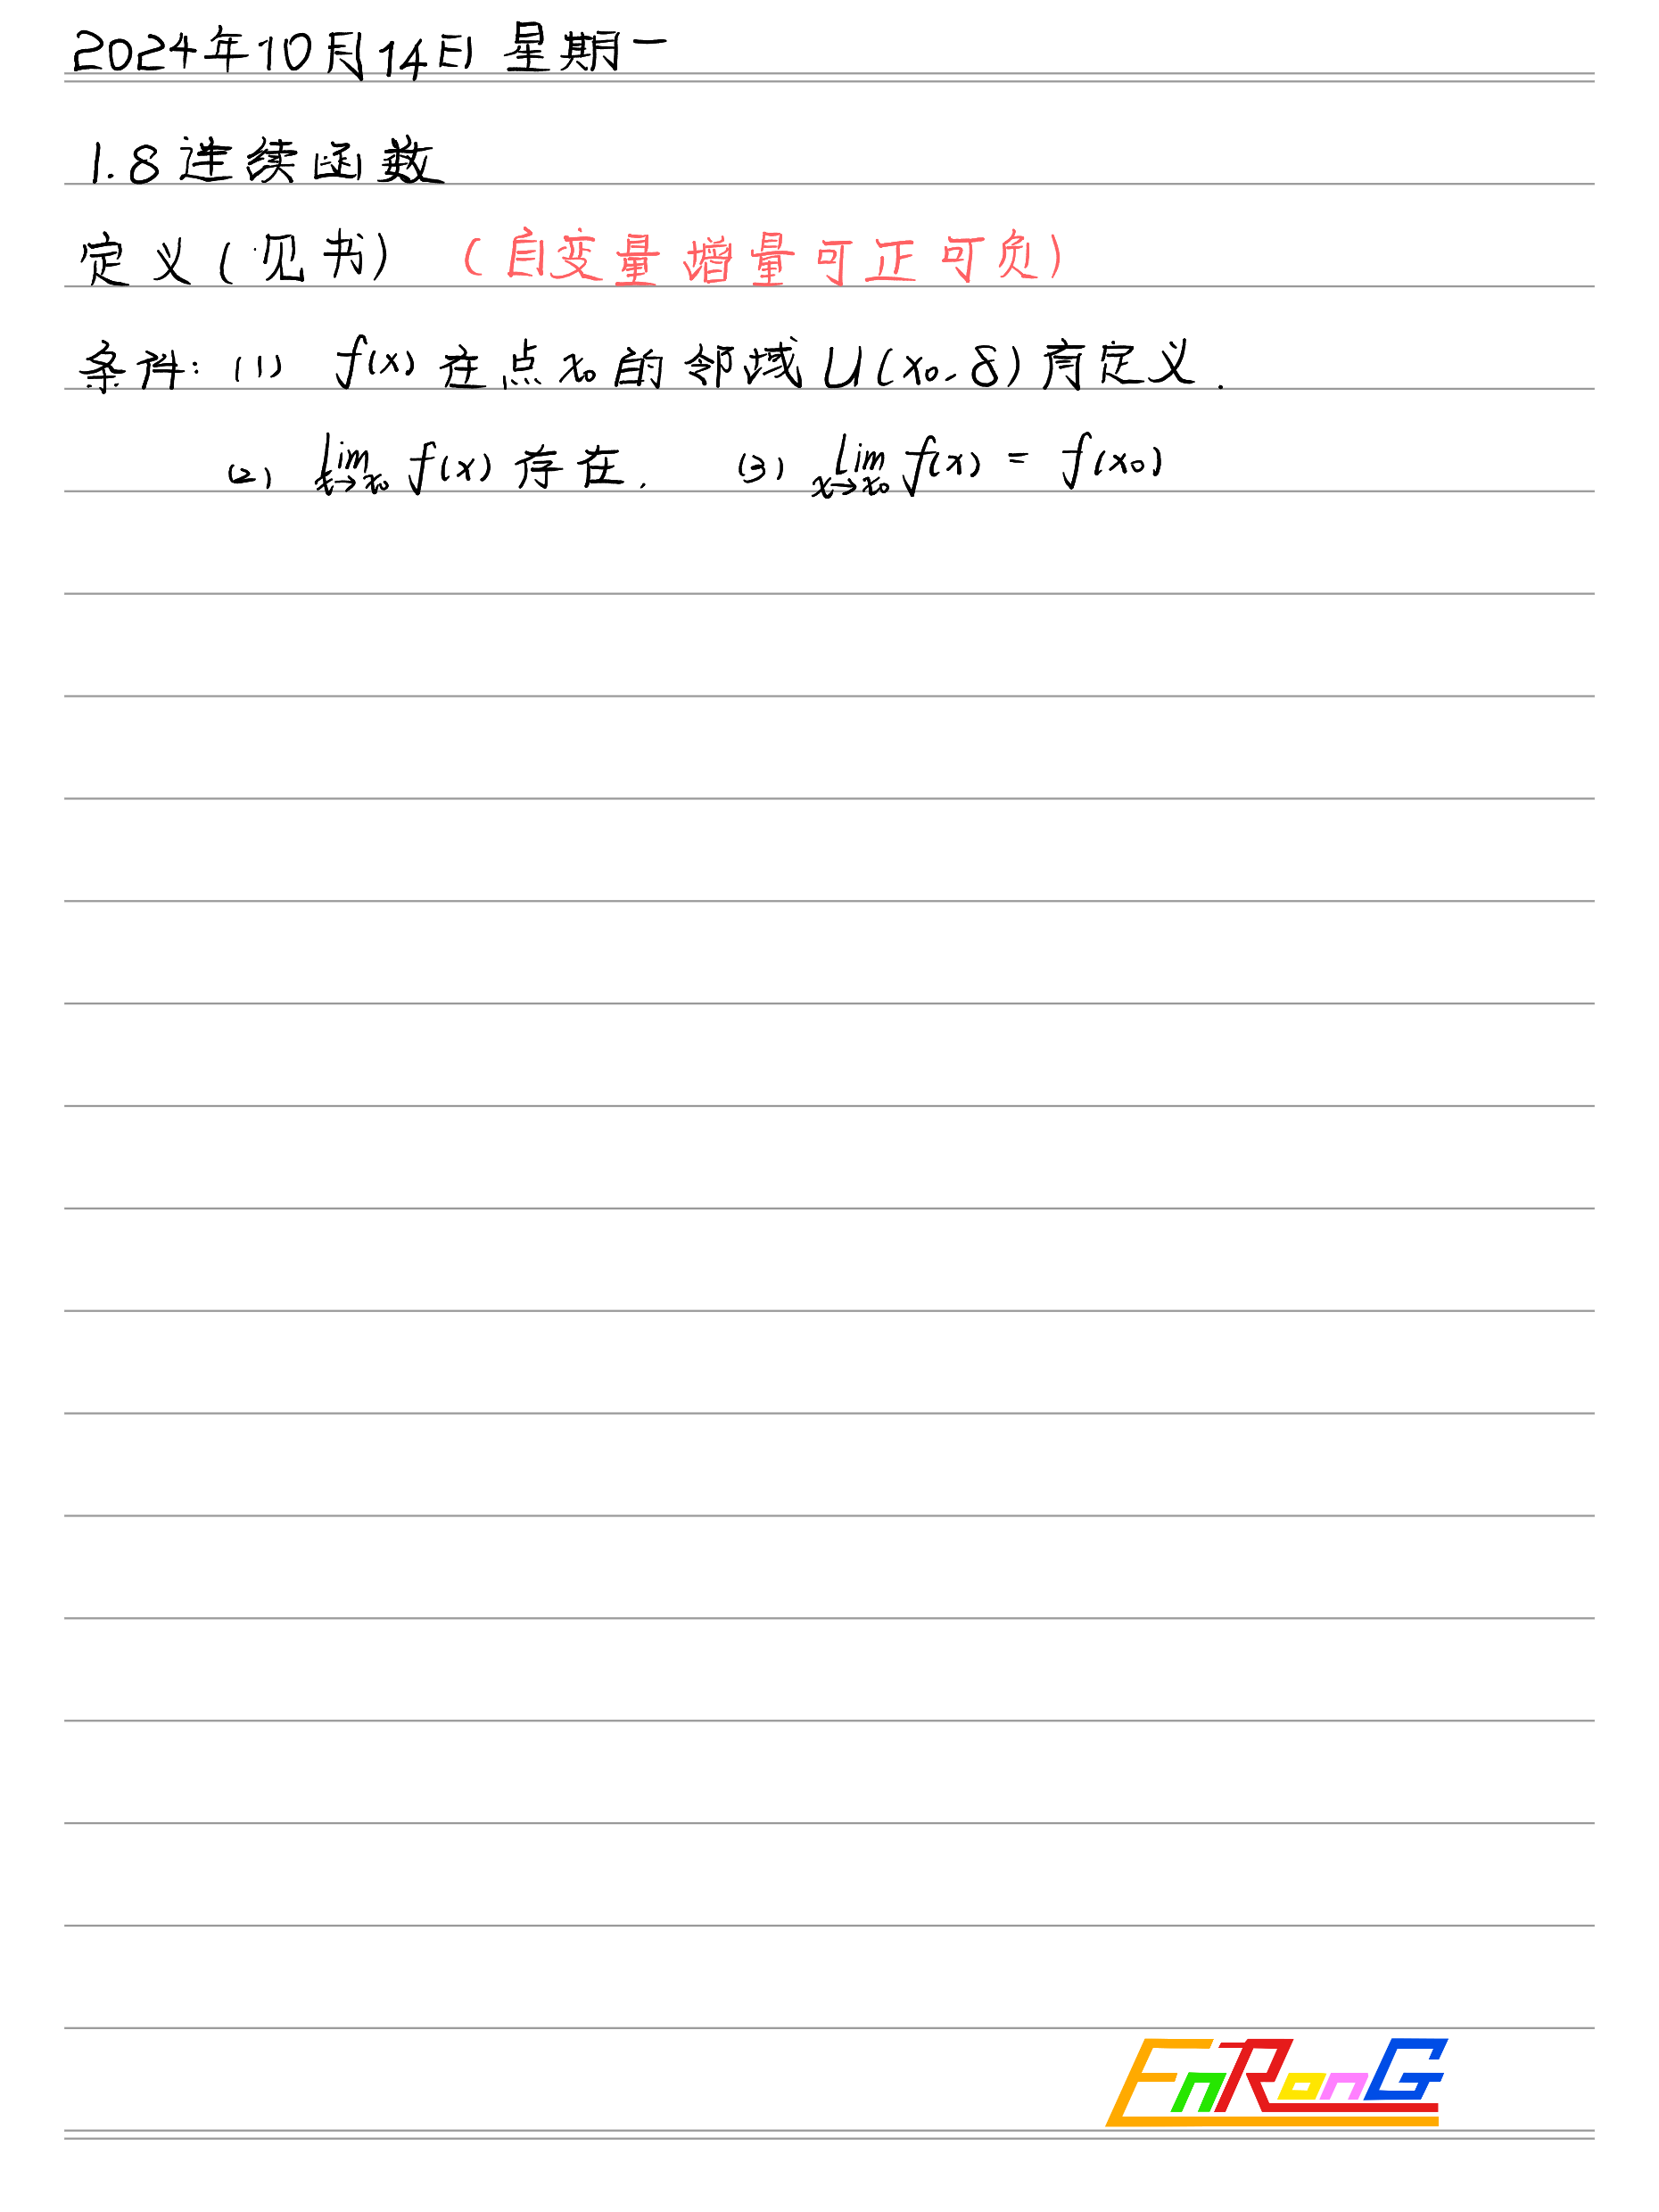 2024年10月14日 星期一
1.8 连续函数
定义(见书) (自变量增量可正可负)
条件: (1) f(x) 在点 x₀ 的邻域 U(x₀, δ) 有定义.
(2) lim x→x₀ f(x) 存在. (3) lim x→x₀ f(x) = f(x₀)
EnRonG